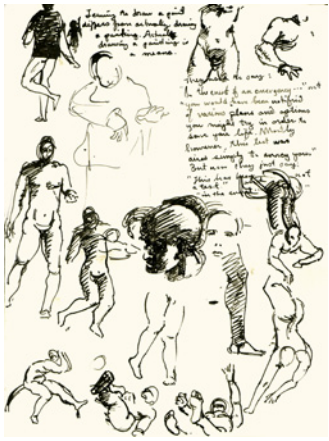 differs from actually drawing
a painting. Actually
drawing a painting is
a means.
They make the say:
"In the event of an emergency..." not
"you would have been notified
of various plans and options
you might try in order to
save your life. Actually
however, this test was
simply to annoy you."
But now they just say:
"This has not
a test"
"in the